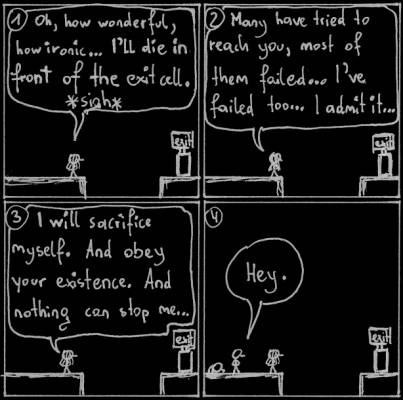 1 Oh, how wonderful,
how ironic... I'll die in
front of the exit cell.
*sigh*
exit
2 Many have tried to
reach you, most of
them failed... I've
failed too... I admit it...
exit
3 I will sacrifice
myself. And obey
your existence. And
nothing can stop me...
exit
4
Hey.
exit